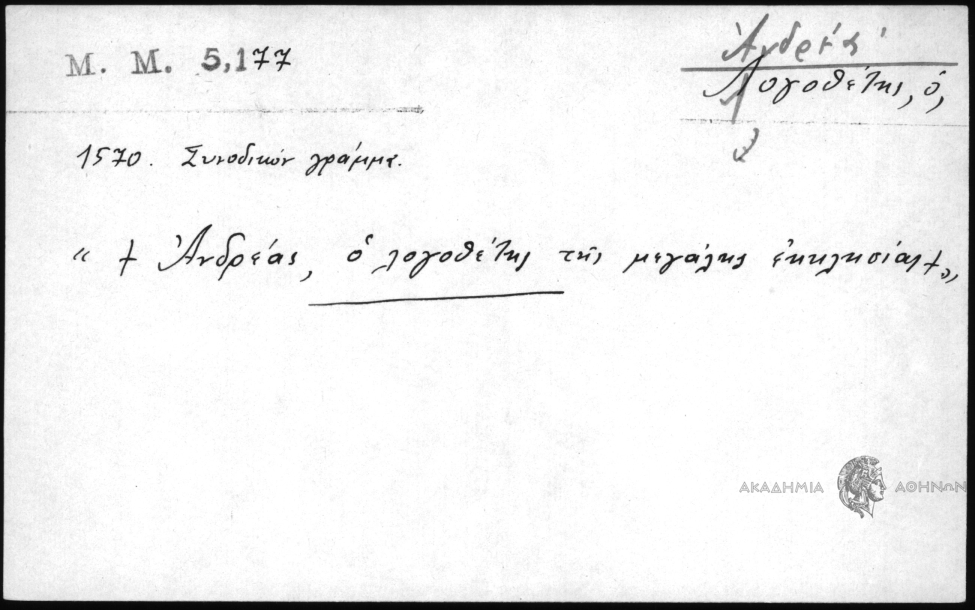 M. M. 5,177
Ἀνδρέας
Λογοθέτης, ὁ,
1570. Συνοδικὸν γράμμα.
“ † Ἀνδρέας, ὁ λογοθέτης τῆς μεγάλης ἐκκλησίας † „
ΑΚΑΔΗΜΙΑ ΑΘΗΝΩΝ